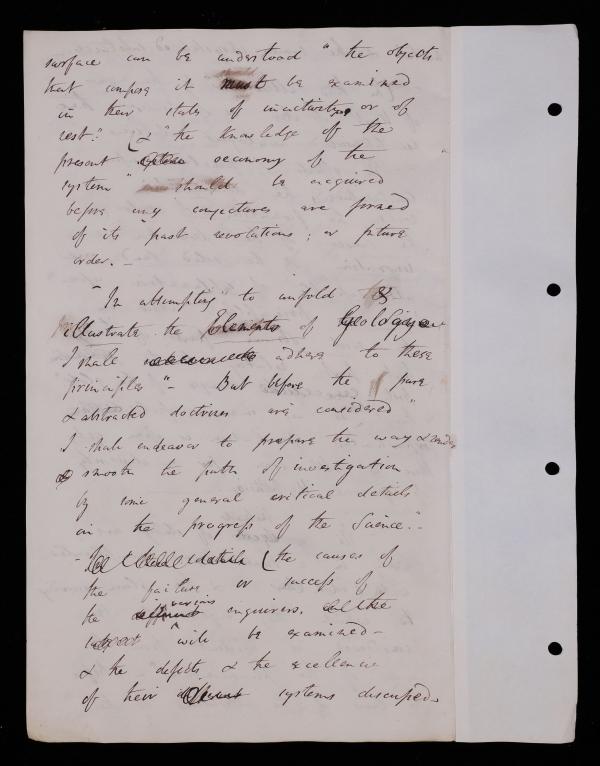 surface can be understood " the objects
that compose it must be examined
in their state of inactivity or of
rest." & "the knowledge of the
present oeconomy of the
system" should be acquired
before any conjectures are formed
of its past revolutions; or future
order. _
"In attempting to unfold &
illustrate the Elements of Geology
I shall adhere to these
principles" - But before the pure
& abstracted doctrines are considered"
I shall endeavor to prepare the way &
smooth the path of investigation
by some general critical details
on the progress of the Science."-
- (the causes of
the failure or success of
the various enquirers,
will be examined -
& the defects & the excellence
of their systems discussed